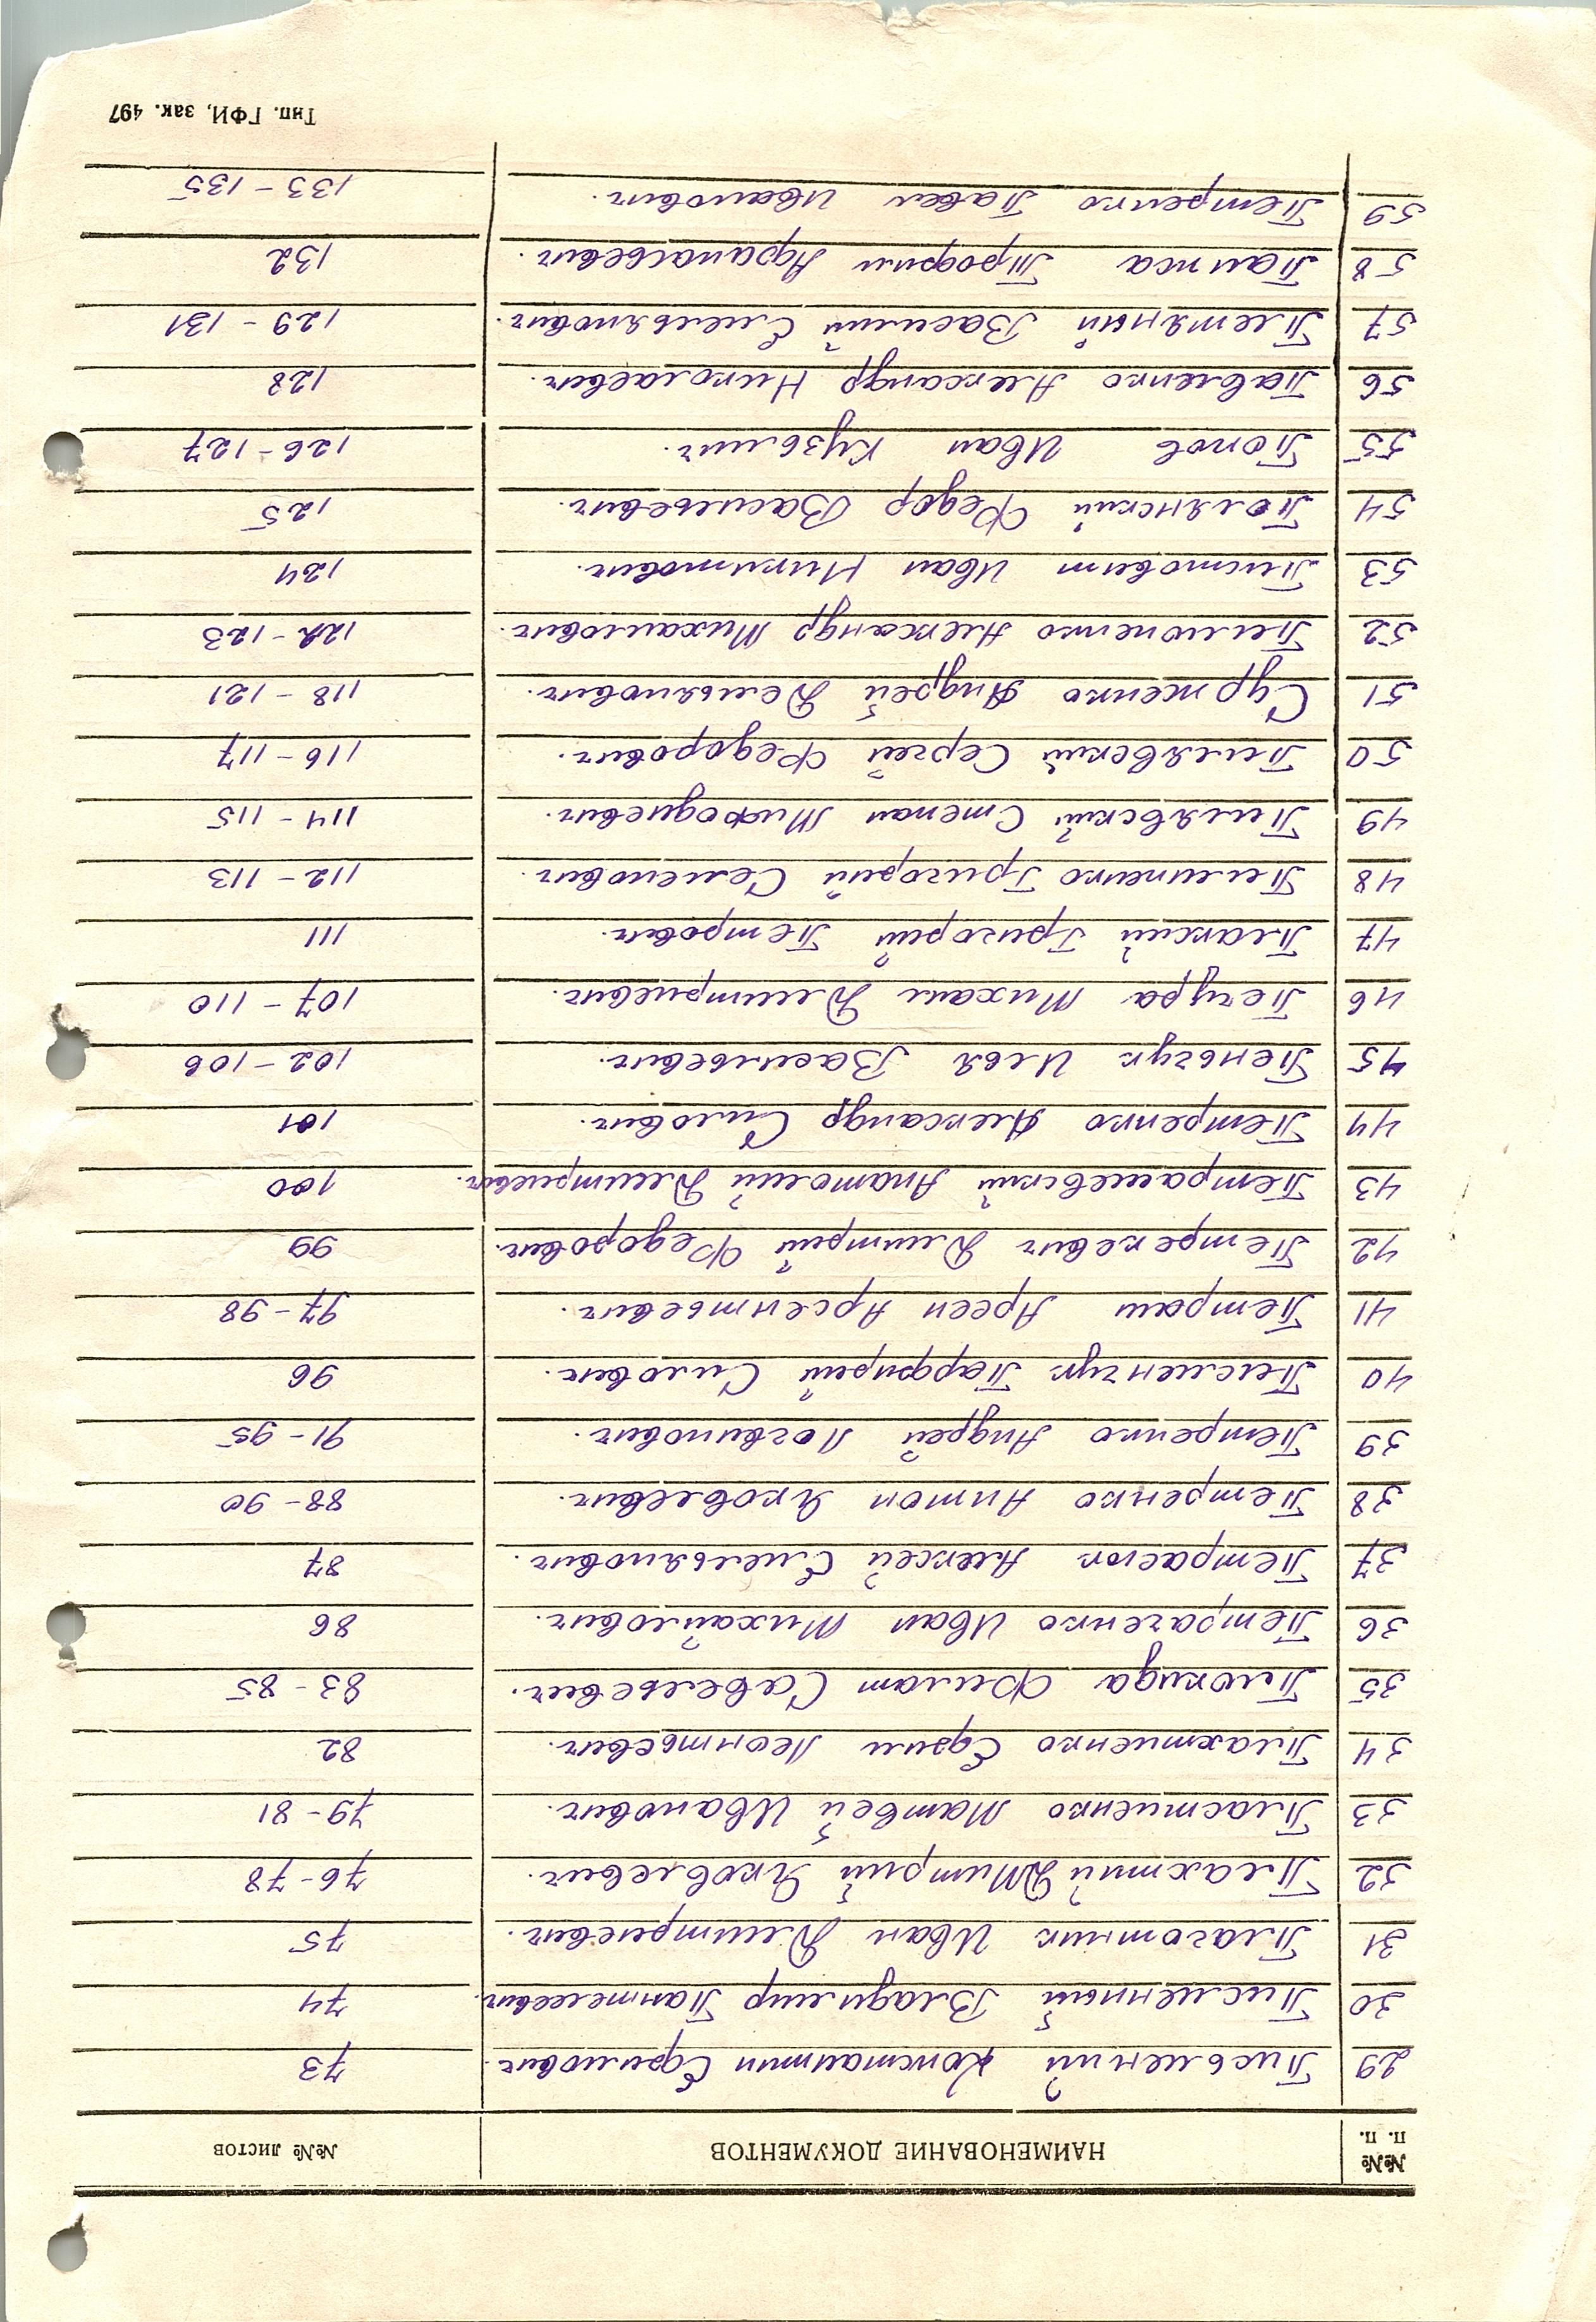 №№ п. п. НАИМЕНОВАНИЕ ДОКУМЕНТОВ №№ листов
29 Письменный Константин Ефимович. 73
30 Письменный Владимир Пантелеевич. 74
31 Плаготник Иван Дмитриевич. 75
32 Плахтий Дмитрий Яковлевич. 76-78
33 Пластиенко Матвей Иванович. 79-81
34 Плахтиенко Ефим Леонтьевич. 82
35 Плюкида Филат Савельевич. 83-85
36 Петраченко Иван Михайлович. 86
37 Петрасюк Алексей Емельянович. 87
38 Петренко Антон Яковлевич. 88-90
39 Петренко Андрей Логвинович. 91-95
40 Письменчук Парфирий Силович. 96
41 Петраш Арсен Арсентьевич. 97-98
42 Петрекевич Дмитрий Федорович. 99
43 Петрашевский Анатолий Дмитриевич. 100
44 Петренко Александр Силович. 101
45 Пеньчук Илья Васильевич. 102-106
46 Печура Михаил Дмитриевич. 107-110
47 Плаксий Григорий Петрович. 111
48 Пилипенко Григорий Семенович. 112-113
49 Пилявский Степан Мифодиевич. 114-115
50 Пилявский Сергей Федорович. 116-117
51 Сурженко Андрей Демьянович. 118-121
52 Пилипенко Александр Михайлович. 122-123
53 Пистовит Иван Никитович. 124
54 Полянский Федор Васильевич. 125
55 Попов Иван Кузьмич. 126-127
56 Павленко Александр Николаевич. 128
57 Плетяный Василий Емельянович. 129-131
58 Папжа Трофим Афанасьевич. 132
59 Петренко Павел Иванович. 133-135
Тип. ГФИ, зак. 497